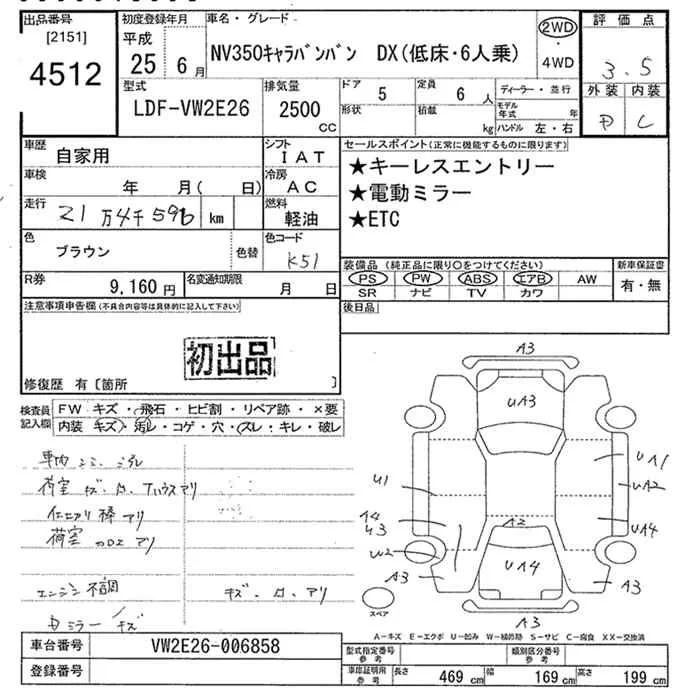 出品番号
[2151]
4512
初度登録年月
平成
25 6 月
車名・グレード
NV350キャラバンバン DX(低床・6人乗)
2WD
・
4WD
評価点
3.5
外装 内装
D C
型式
LDF-VW2E26
排気量
2500
CC
ドア 5
形状
定員 6 人
積載 kg
ディーラー・並行
モデル年式 年
ハンドル 左・右
車歴
自家用
シフト
I A T
車検
年 月( 日)
冷房
A C
走行
21 万 4 千 596 km
燃料
軽油
色
ブラウン
色替
色コード
K51
R券
9,160 円
名変通知期限
月 日
セールスポイント(正常に機能するものに限ります)
★キーレスエントリー
★電動ミラー
★ETC
装備品(純正品に限り○をつけてください)
PS PW ABS エアB AW
SR ナビ TV カワ
新車保証書
有・無
後日品
注意事項申告欄(不具合内容等は具体的に記入して下さい)
初出品
修復歴 有〔箇所 〕
検査員記入欄
FW キズ・飛石・ヒビ割・リペア跡・×要
内装 キズ・汚レ・コゲ・穴・スレ・キレ・破レ
荷室 キズ
アリ
仕切り棒 アリ
荷室 アリ
エンジン不調
キズ アリ
ミラー キズ
A3
UA3
UA1
UA2
U1
A4
U3
A2
UA4
U2
A3
UA4
A3
A3
スペア
A-キズ E-エクボ U-凹み W-補修跡 S-サビ C-腐食 XX-交換済
車台番号
VW2E26-006858
登録番号
型式指定番号
参考
類別区分番号
参考
車庫証明用
参考
長さ 469 cm 幅 169 cm 高さ 199 cm